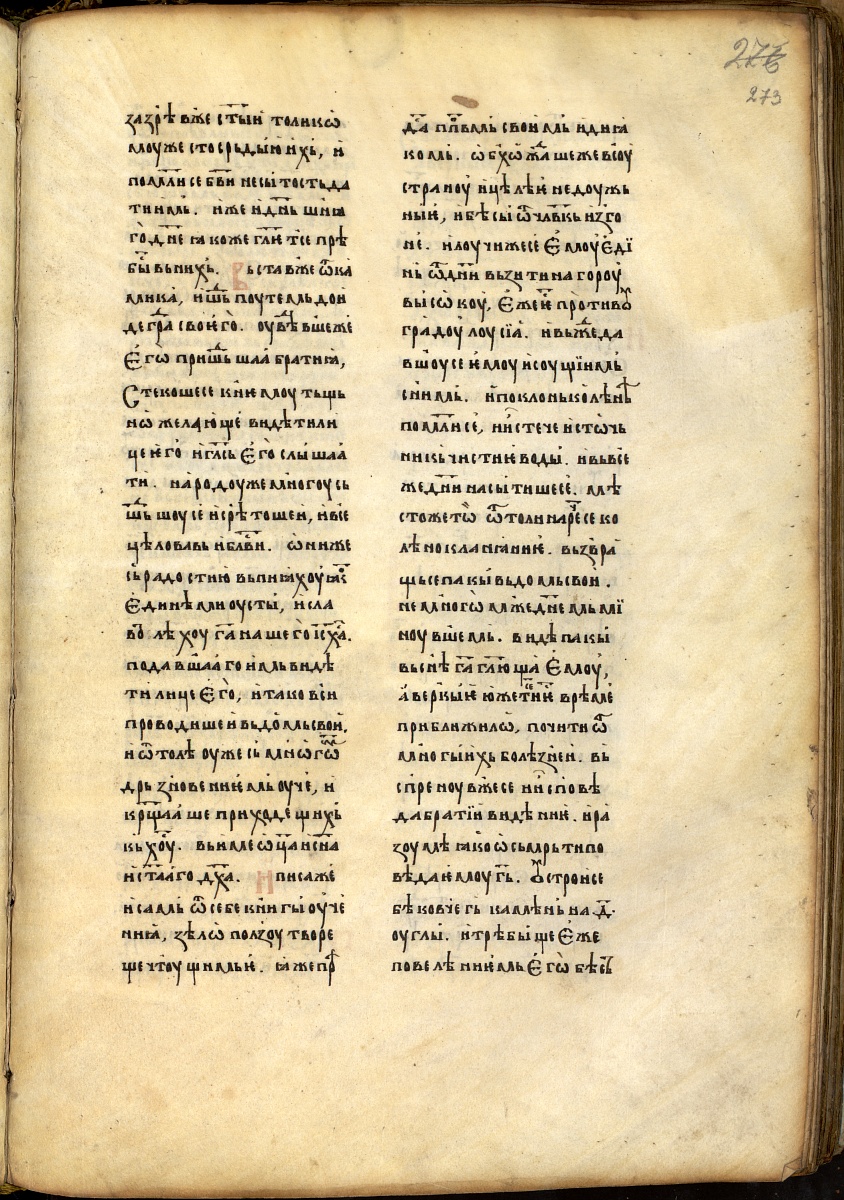 276
273
зазрѣв же ст҃ыи толикѡ
моужестосрьдыи ихь, и
помл҃исе бв҃и несытость да
ти имь. иже и дн҃ьшнꙗ
го дн҃е ꙗкоже гл҃ѥтсе прѣ
бы вь нихь. Вьстав же ѿ ка
мика, и шⷣь поутемь дои
де граⷣ своѥго. оувѣⷣвше же
Ѥгѡ пришⷣьшаа братиꙗ,
Стекошесе кь нѥмоу тьщь
нѡ желающе видѣти ли
це ѥго и гла҃сь Ѥго слышаа
ти. народоу же многоу сь
шⷣьшоусе и срѣтоше и, и все
цѣловавь и блв҃и. ѡни же
сь радостию вьпиꙗхоу ꙗкⷪ
Ѥдинѣми оусты, и сла
влꙗхоу га҃ нашего іс҃ ха҃.
подавшааго имь видѣ
ти лице Ѥго, и тако вси
проводише и вь домь свои.
и ѿтолѣ оуже сь многѡⷨ
дрьзновениѥмь оуче, и
крⷭ҇щааше приходещихь
кь хоу҃. вь име ѡц҃а и сн҃а
и ст҃ааго дх҃а. Писа же
и самь ѿ себе книгы оуче
ниꙗ, зѣлѡ ползоу творе
ще чтоущимь ѥ. ꙗже прⷣ
да пп҃вмь своимь и дꙗ
комь. ѡбхⷪждааше же всоу
страноу и цѣлѥ недоужь
ныѥ, и бѣсы ѿ чл҃вкь изго
не. и лоучи же се Ѥмоу Ѥди
нь ѿ дн҃и вьзити на гороу
высѡкоу, Ѥже ѥ противоу
градоу лоусіа. и вьжеда
вшоусе ѥмоу и соущіимь
сь нимь. и поклонь колѣнѣ
помл҃исе, и истече истѡчь
никь чистиѥ воды. и вь все
жедни насытишесе. мѣ
сто же тѡ ѿтоли нарⷱесе ко
лѣнокланꙗниѥ. вьзвра
щьсе пакы вь домь свои.
не многѡм же дн҃емь ми
ноувшемь. видѣ пакы
вь снѣ га҃ гл҃юща Ѥмоу,
аверкыѥ юже тѥⷭ҇ ѥⷭ҇ врѣме
приближилѡ, почити ѿ
многыихь болѣзнеи. вь
спреноув же се и исповѣ
да братіи видѣниѥ. и ра
зоумѣ ꙗко ѡ сьмрьти по
вѣда ѥмоу гь҃. оустрои се
бѣ ковчегь камѣнь на д҃.
оуглы. и трѣбыще Ѥже
повелѣниѥмь Ѥгѡ бѣсь